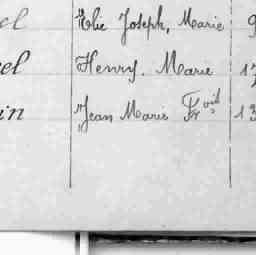 el Elie Joseph, Marie 9
el Henry. Marie 17
in Jean Marie 13